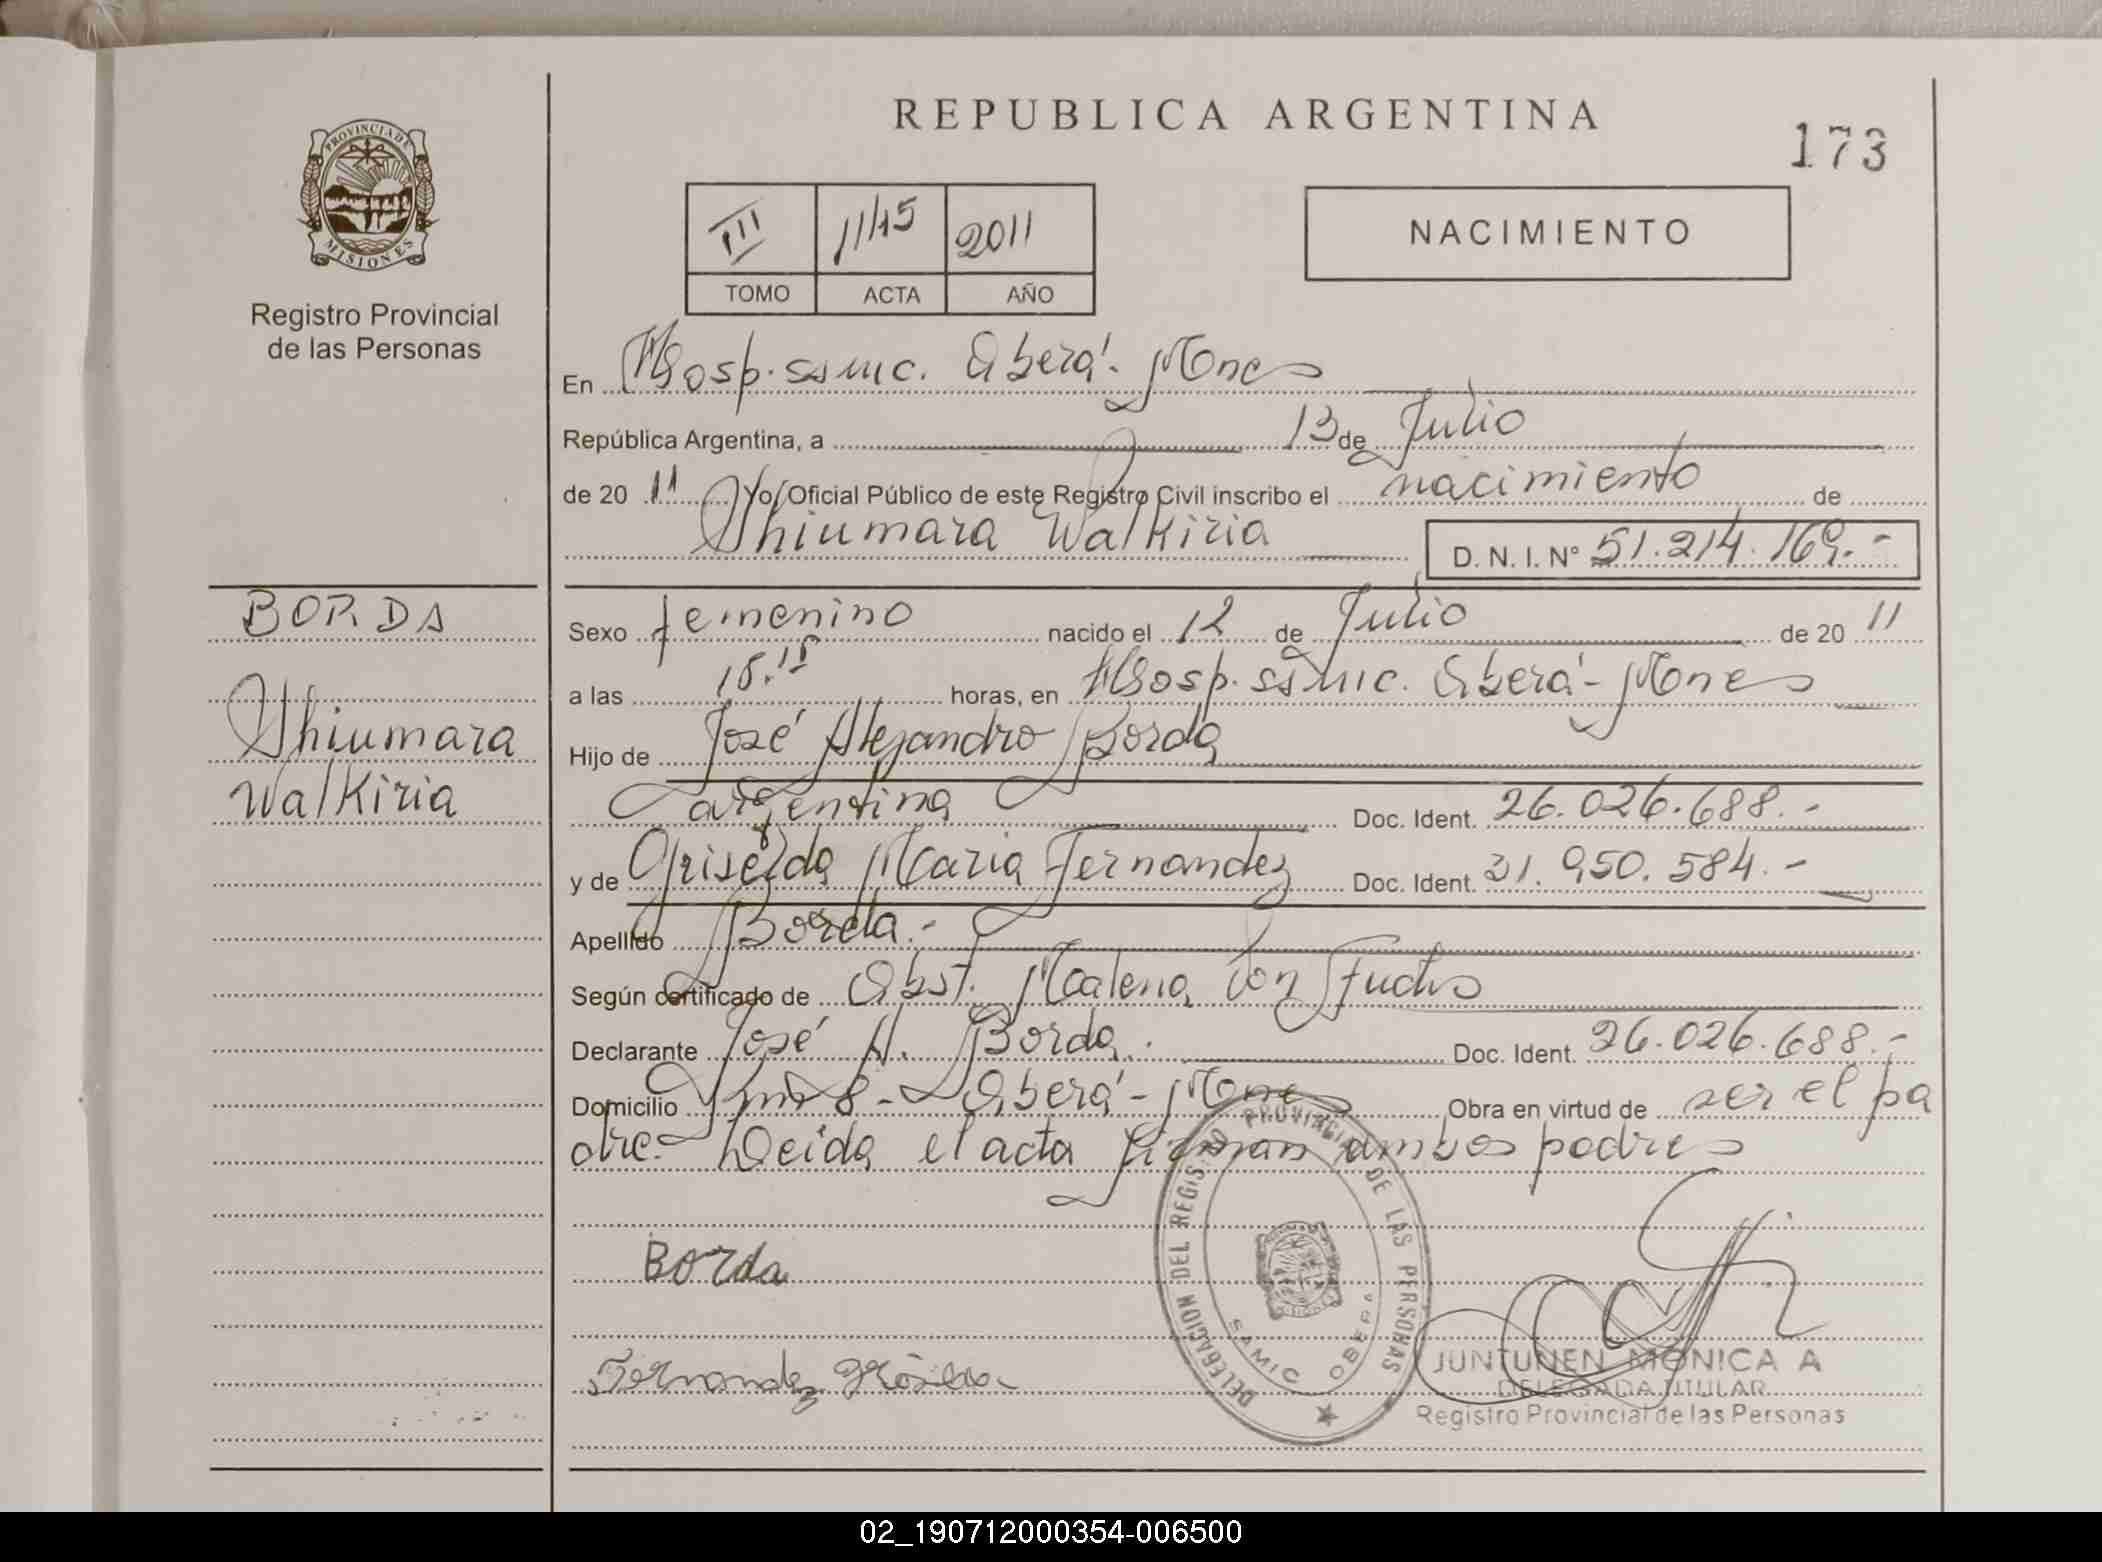 REPUBLICA ARGENTINA
173
PROVINCIA DE
MISIONES
Registro Provincial
de las Personas
III 1145 2011
TOMO ACTA AÑO
NACIMIENTO
En Hosp. samic. Oberá - Mnes
República Argentina, a 13 de Julio
de 20 11 Yo, Oficial Público de este Registro Civil inscribo el nacimiento de
Shiumara Walkiria D. N. I. N° 51.214.169.-
BORDA
Shiumara
Walkiria
Sexo femenino nacido el 12 de Julio de 20 11
a las horas, en Hosp. samic. Oberá - Mones
Hijo de José Alejandro Borda
argentina Doc. Ident. 26.026.688.-
y de Griselda Maria Fernandez Doc. Ident. 31.950.584.-
Apellido Borda.-
Según certificado de Obst. Malena Von
Declarante José A. Borda. Doc. Ident. 26.026.688.-
Domicilio 8 - Oberá - Mones Obra en virtud de ser el pa
dre. Leida el acta firman ambos padres
Borda
Fernandez Griselda
DELEGACION DEL REGISTRO PROVINCIAL DE LAS PERSONAS
SAMIC OBERA
JUNTUNEN MONICA A
DELEGADA TITULAR
Registro Provincial de las Personas
02_190712000354-006500